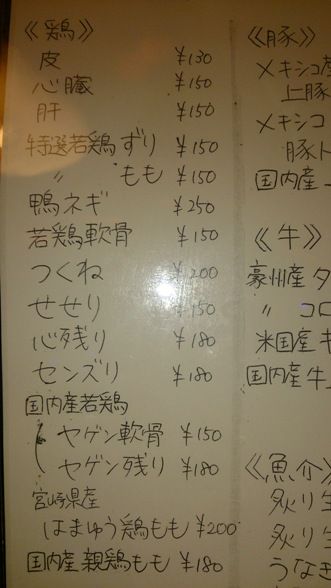 《鶏》
皮 ¥130
心臓 ¥150
肝 ¥150
特選若鶏ずり ¥150
〃 もも ¥150
鴨ネギ ¥250
若鶏軟骨 ¥150
つくね ¥200
せせり ¥150
心残り ¥180
センズリ ¥180
国内産若鶏
ヤゲン軟骨 ¥150
ヤゲン残り ¥180
宮崎県産
はまゆう鶏もも ¥200
国内産親鶏もも ¥180
《豚》
メキシコ産
上豚
メキシコ
豚ト
国内産
《牛》
豪州産タ
〃 コロ
米国産
国内産牛
《魚介》
炙り生
炙り生
うなぎ